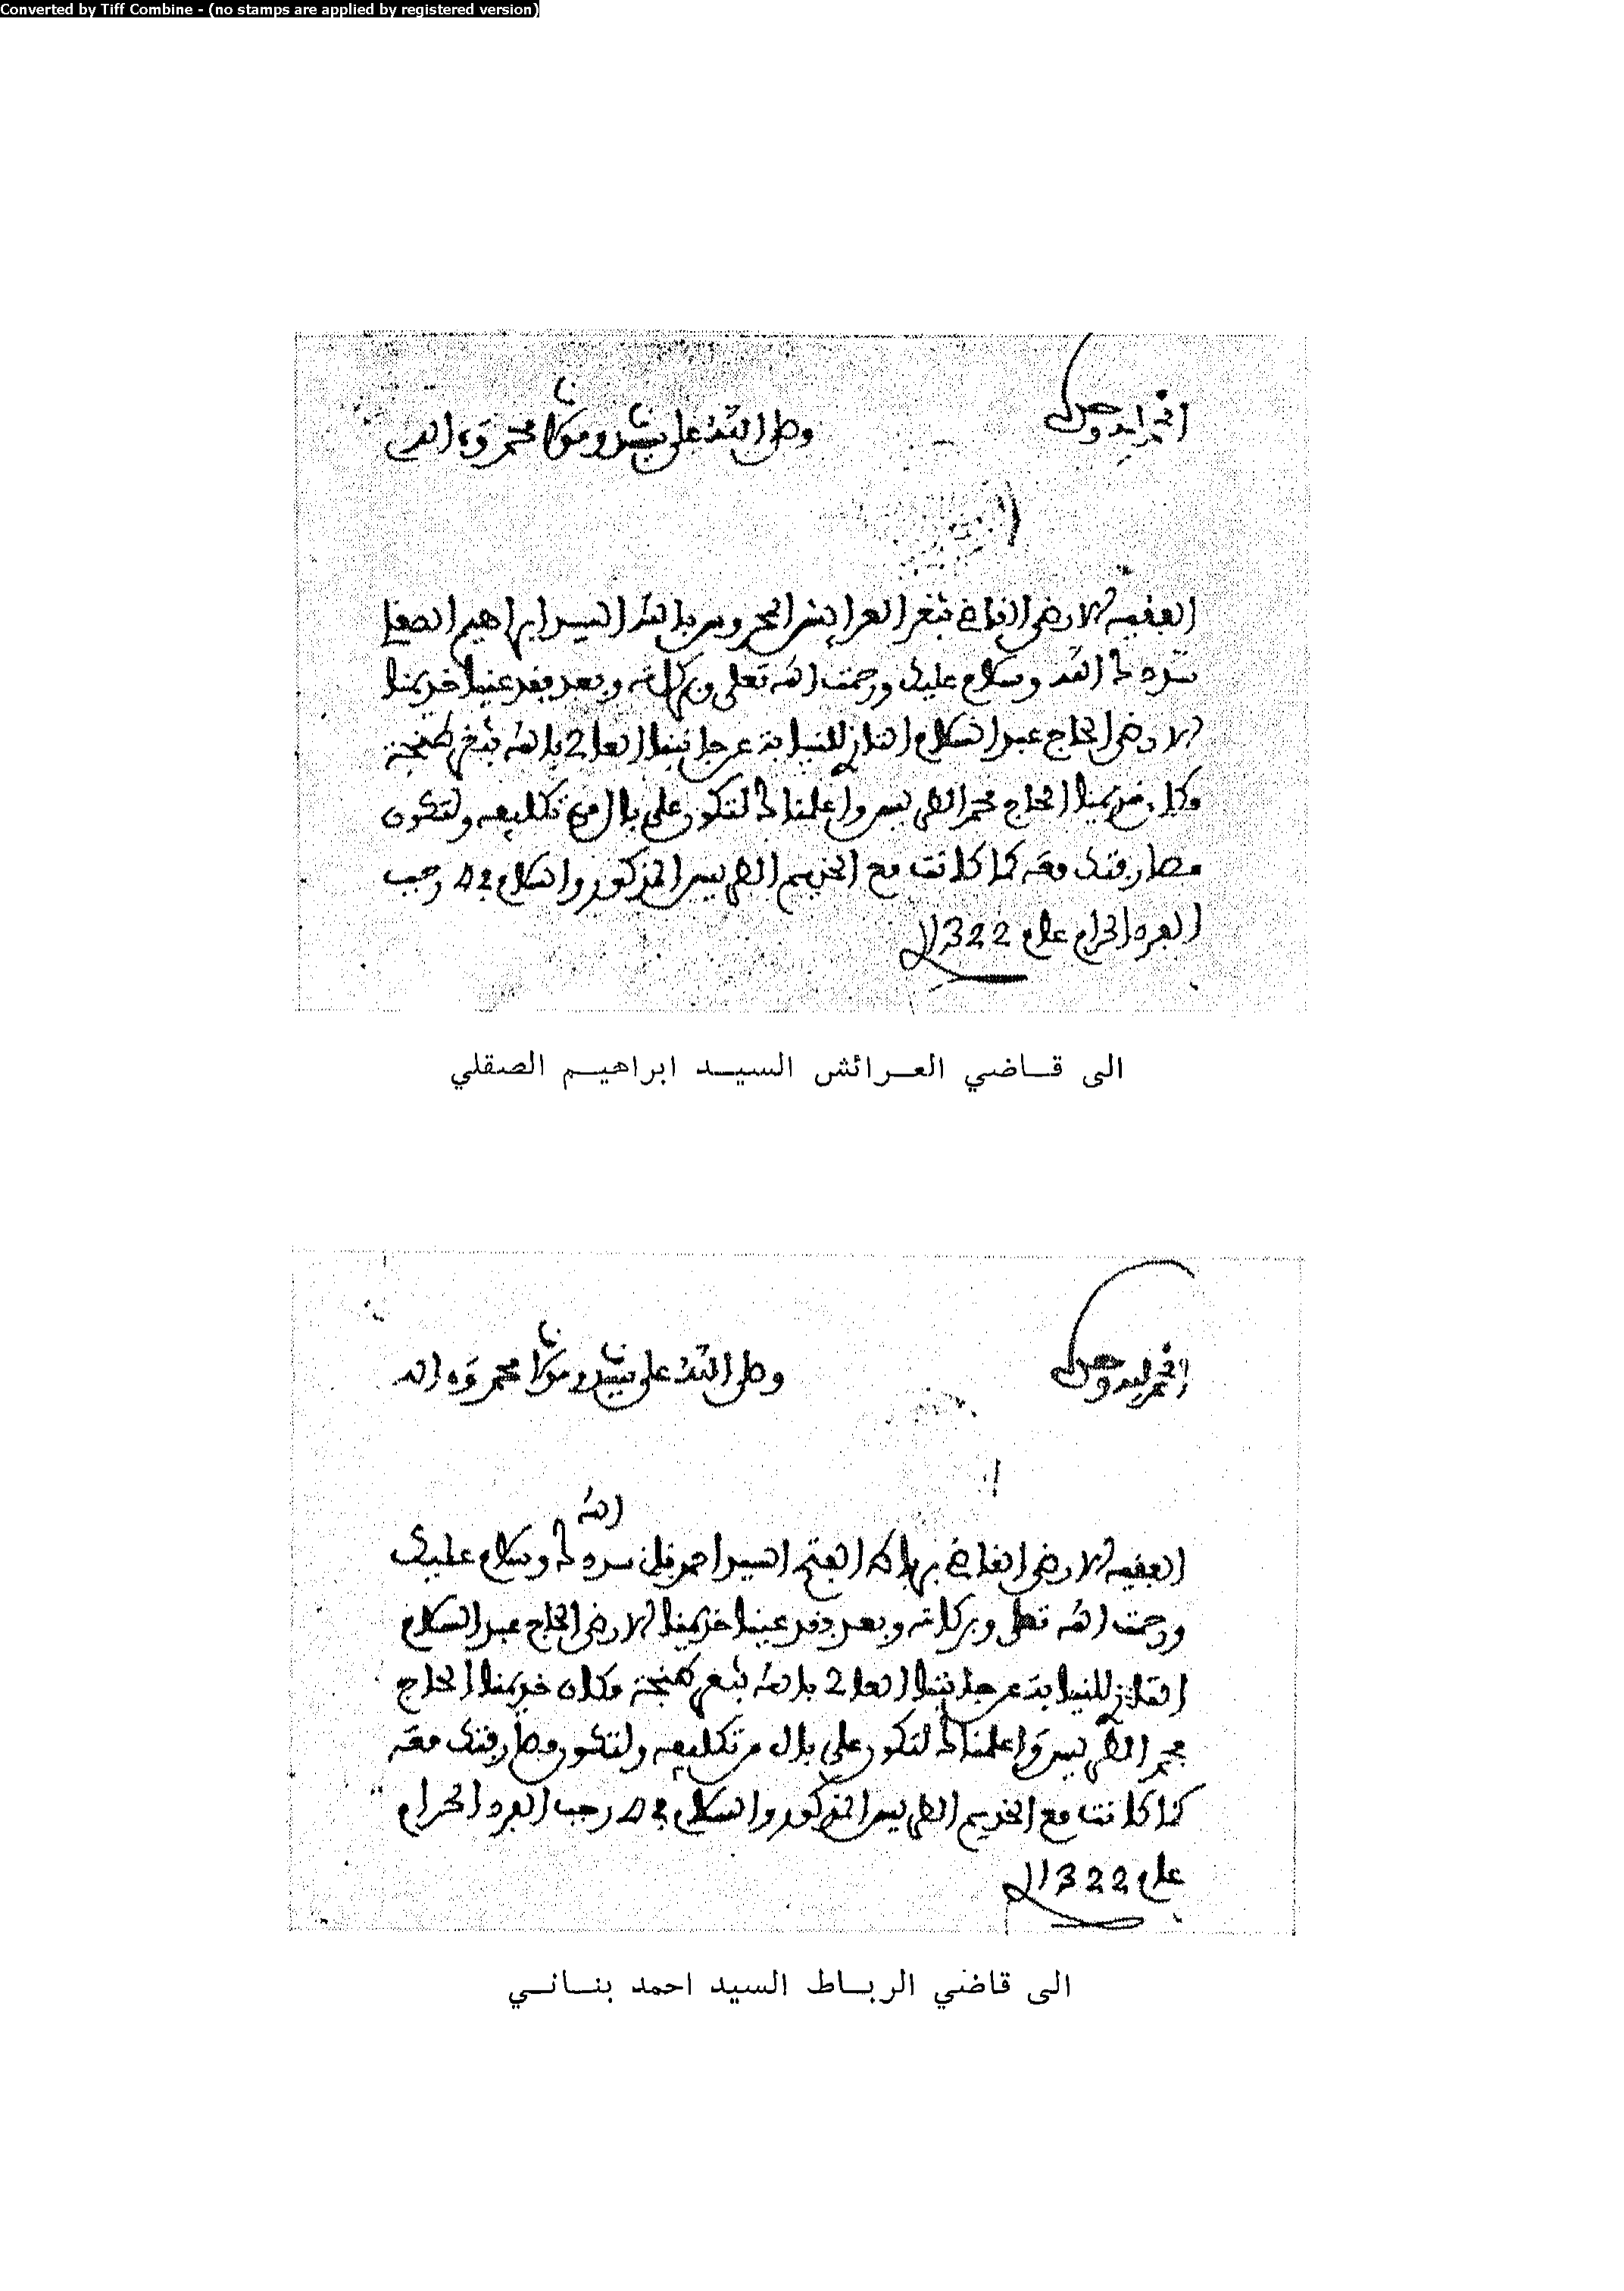 Converted by Tiff Combine - (no stamps are applied by registered version)
الحمد لله وحده
وصلى الله على سيدنا ومولانا محمد وءاله
الفقيه الارضى القاضي بثغر العرايش المحروس بالله السيد ابراهيم الصقلي
سددك الله وسلام عليك ورحمت الله تعلى وبركاته وبعد فقد عينا خديمنا
الارضى الحاج عبد السلام التازي للنيابة عن جانبنا العالي بالله بثغر طنجة
خديمنا الحاج محمد الطريس واعلمناك لتكون على بال من تكليفه ولتكون
مصارفتك معه كما كانت مع الخديم الطريس المذكور والسلام في رجب
الفرد الحرام عام 1322
الى قاضي العرائش السيد ابراهيم الصقلي
الحمد لله وحده
وصلى الله على سيدنا ومولانا محمد وءاله
الله
الفقيه الارضى القاضي برباط الفتح السيد احمد سددك وسلام عليك
ورحمت الله تعلى وبركاته وبعد فقد عينا خديمنا الارضى الحاج عبد السلام
التازي للنيابة عن جانبنا العالي بالله بثغر طنجة مكان خديمنا الحاج
محمد الطريس واعلمناك لتكون على بال من تكليفه ولتكون مصارفتك معه
كما كانت مع الخديم الطريس المذكور والسلام في رجب الفرد الحرام
عام 1322
الى قاضي الرباط السيد احمد بناني